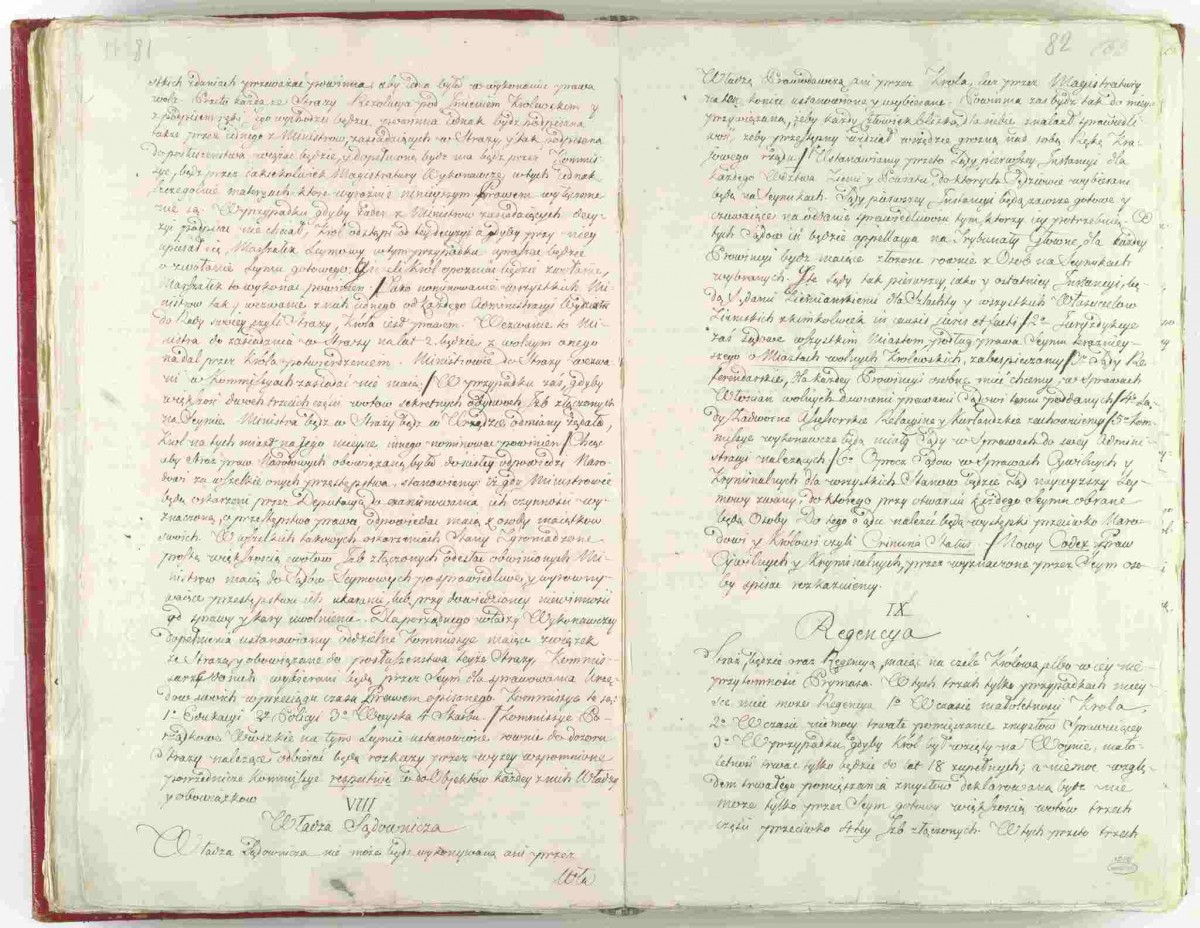 81
stkich zdaniach przeważać powinna, aby iedna była w wykonaniu prawa
wola. Przeto każda ze Straży Rezolucya pod Imieniem Krolewskim y
z podpisem ręki iego wychodzić będzie, powinna iednak bydź podpisana
także przez iednego z Ministrow zasiadaiących w Straży, y tak podpisana
do posłuszeństwa wiązać będzie, y dopełniona bydź ma bądź przez Kommis-
sye, bądź przez iakiekolwiek Magistratury Wykonawcze, w tych iednak
szczegulnie materyach, ktore wyraźnie ninieyszym Prawem wyłączone
nie są. W przypadku, gdyby żaden z Ministrow zasiadaiących Decy-
zyi podpisać nie chciał, Krol odstąpi od tey decyzyi, a gdyby przy niey
upierał się, Marszałek Seymowy w tym przypadku upraszać będzie
o zwołanie Seymu gotowego. Jeżeli Krol opoźniać będzie zwołanie,
Marszałek to wykonać powinien. / Jako nominowanie wszystkich Mi-
nistrow, tak y wezwanie z nich iednego od każdego Administracyi Wydziału
do Rady swoiey czyli Straży, Krola iest prawem. Wezwanie to Mi-
nistra do zasiadania w Straży na lat 2 będzie z wolnym onego
nadal przez Krola potwierdzeniem. Ministrowie do Straży wezwa-
ni w Kommissyach zasiadać nie maią. / W przypadku zaś, gdyby
większość dwoch trzecich części wotow sekretnych obydwoch Izb złączonych
na Seymie Ministra bądź w Straży bądź w Urzędzie odmiany żądała,
Krol natychmiast na iego mieysce innego nominować powinien. / Chcąc
aby Straż praw Narodowych obowiązaną była do ścisłey odpowiedzi Naro-
dowi za wszelkie onych przestępstwa, stanowiemy, iż gdy Ministrowie
będą oskarżeni przez Deputacyą do examinowania ich czynności wy-
znaczoną, o przestępstwo prawa, odpowiadać maią z osoby y maiątkow
swoich. W wszelkich takowych oskarżeniach Stany Zgromadzone
prostą większością wotow Izb złączonych odesłać obwinionych Mi-
nistrow maią do Sądow Seymowych po sprawiedliwe y wyrowny-
waiące przestępstwu ich ukaranie, lub przy dowiedzioney niewinności
od sprawy y kary uwolnienie. Dla porządnego władzy Wykonawczey
dopełnienia ustanawiamy oddzielne Kommissye maiące związek
ze Strażą, y obowiązane do posłuszeństwa teyże Straży. Kommis-
sarze do nich wybierani będą przez Seym dla sprawowania Urzę-
dow swoich w przeciągu czasu Prawem opisanego. Kommissye te są:
1° Edukacyi 2° Policyi 3° Woyska 4° Skarbu. / Kommissye Po-
rządkowe Woiewodzkie na tym Seymie ustanowione rownie do dozoru
Straży należące odbierać będą rozkazy przez wyżey wspomnione
posrzednicze Kommissye respective co do Obiektow każdey z nich Władzy
y obowiązkow
VIII
Władza Sądownicza
Władza Sądownicza nie może bydź wykonywaną ani przez
Wła
82
Władzę Prawodawczą, ani przez Krola, lecz przez Magistratury
na ten koniec ustanowione y wybierane. Powinna zaś bydź tak do mieysc
przywiązaną, żeby każdy człowiek bliską dla siebie znalazł sprawiedli-
wość, żeby przestępny widział wszędzie groźną nad sobą rękę Kra-
iowego rządu. / 1° Ustanawiamy przeto Sądy pierwszey Instancyi dla
każdego Wdztwa, Ziemi y Powiatu, do ktorych Sędziowie wybierani
będą na Seymikach. Sądy pierwszey Instancyi będą zawsze gotowe y
czuwaiące na oddanie sprawiedliwości tym, ktorzy iey potrzebuią. Od
tych Sądow iść będzie appellacya na Trybunały Głowne, dla każdey
Prowincyi bydź maiące, złożone rownie z Osob na Seymikach
wybranych. Y te Sądy tak pierwszey, iako y ostatniey Instancyi, bę-
dą Sądami Ziemiańskiemi dla Szlachty y wszystkich Właścicielow
Ziemskich z kimkolwiek in causis juris et facti. / 2° Juryzdykcye
zaś Sądowe wszystkim Miastom podług prawa Seymu teraźniey-
szego o Miastach wolnych Krolewskich, zabespieczamy. / 3° Sądy Re-
ferendarskie, dla każdey Prowincyi osobne mieć chcemy, w Sprawach
Włościan wolnych dawnemi prawami Sądowi temu poddanych. / 4° Są-
dy Zadworne Assessorskie Relacyine y Kurlandzkie zachowuiemy. / 5° Kom-
missye wykonawcze będą miały Sądy w Sprawach do swey Admini-
stracyi należących. / 6° Oprocz Sądow w Sprawach Cywilnych y
Kryminalnych dla wszystkich Stanow będzie Sąd naywyższy Sey-
mowy zwany, do ktorego przy otwarciu każdego Seymu obrane
będą Osoby. Do tego Sądu należeć będą występki przeciwko Naro-
dowi y Krolowi czyli Crimina Status. / Nowy Codex Praw
Cywilnych y Kryminalnych, przez wyznaczone przez Seym oso-
by spisać rozkazuiemy.
IX
Regencya
Straż będzie oraz Regencyą, maiąc na czele Krolową, albo w iey nie-
przytomności Prymasa. W tych trzech tylko przypadkach miey-
sce mieć może Regencya. 1° W czasie małoletności Krola.
2° W czasie niemocy trwałe pomięszanie zmysłow sprawuiącey.
3° W przypadku, gdyby Krol był wzięty na Woynie. Mało-
letność trwać tylko będzie do lat 18 zupełnych; a niemoc wzglę-
dem trwałego pomięszania zmysłow deklarowana bydź nie
może tylko przez Seym gotowy większością wotow trzech
części przeciwko 4tey Izb złączonych. W tych przeto trzech